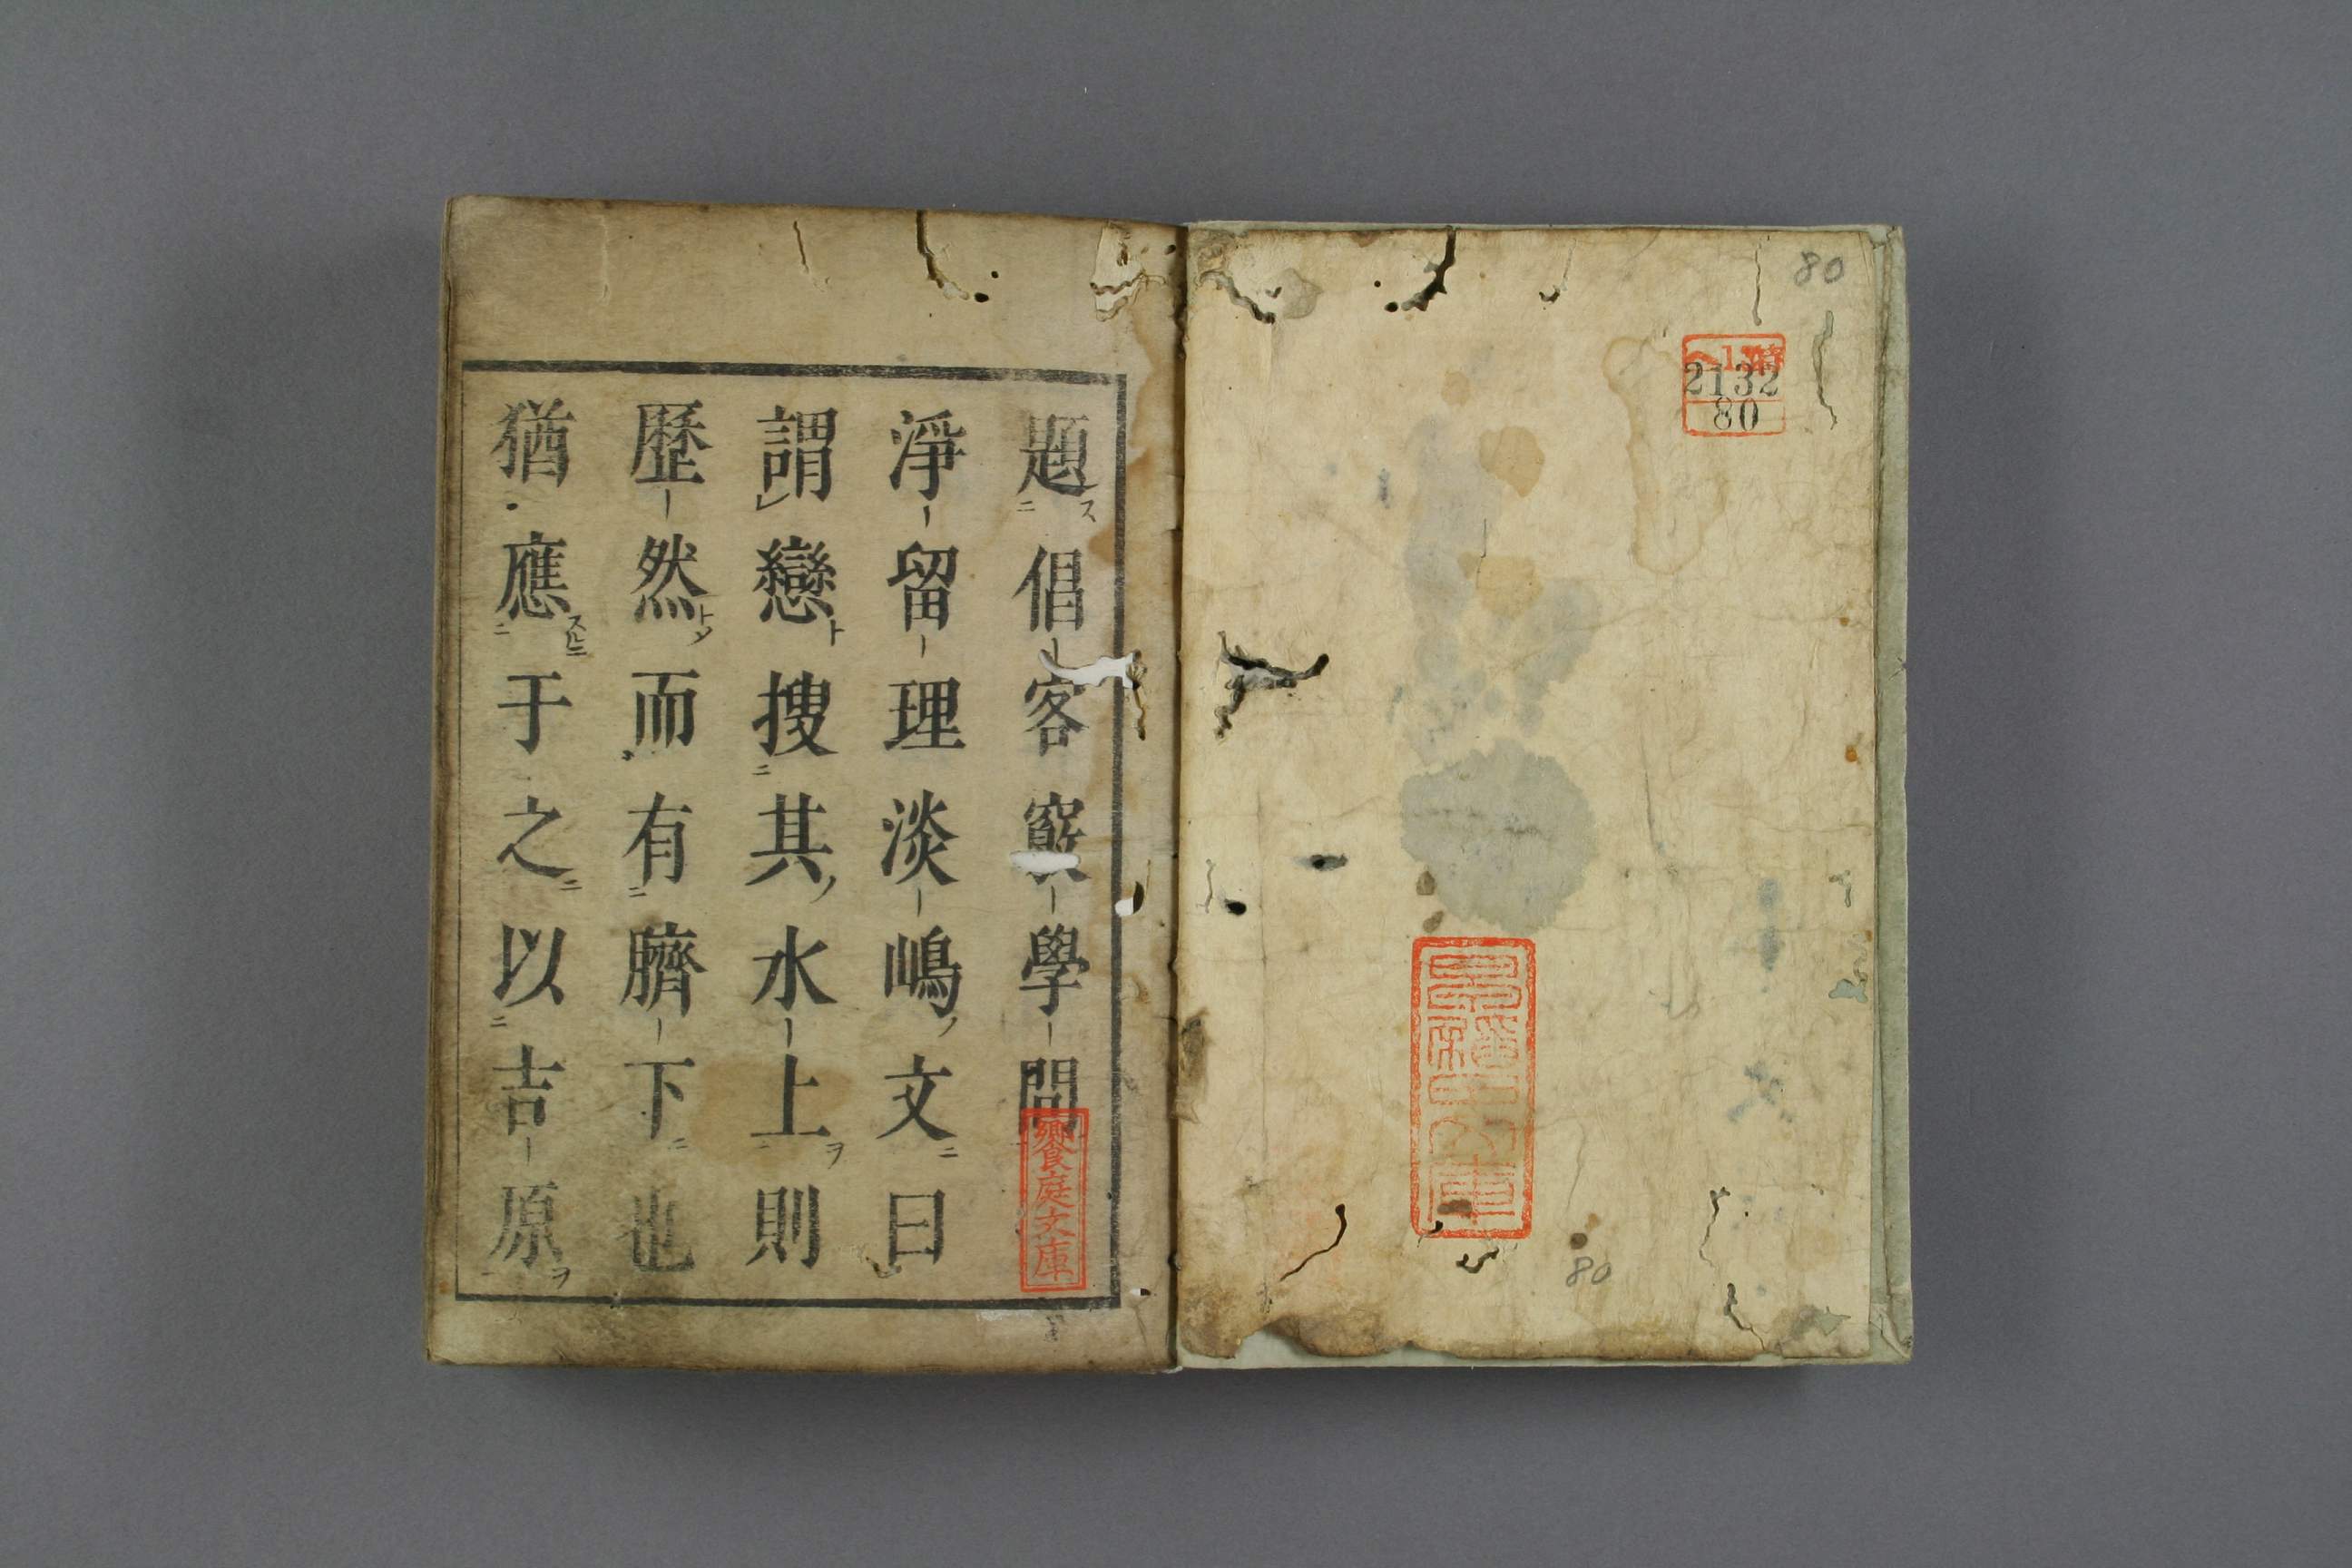 80
2132
80
80
題ス二倡客竅學問
淨留理淡嶋ノ文ニ二曰
謂レ戀ト搜二其ノ水上ヲ則
歷然トメ而有二臍下ニ也
猶應スルニ二于之ニ以二吉原ヲ一
饗庭文庫